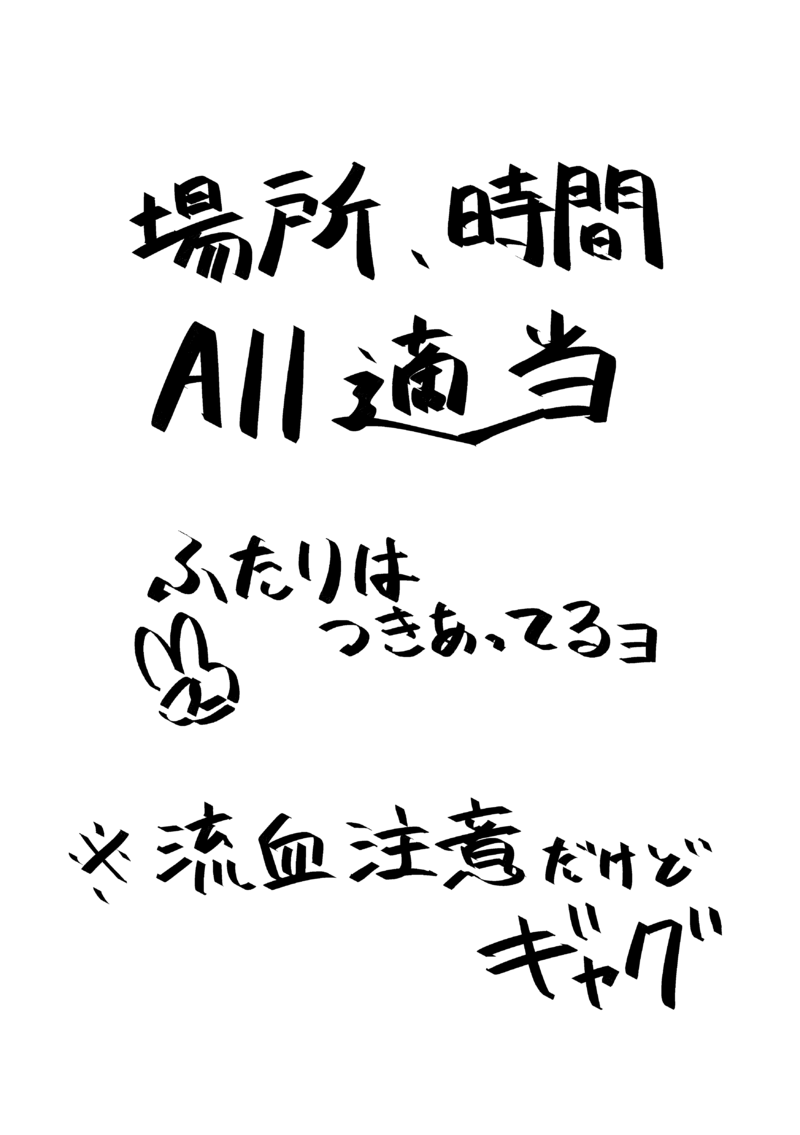 場所、時間
All適当
ふたりは
つきあってるヨ
※流血注意だけど
ギャグ